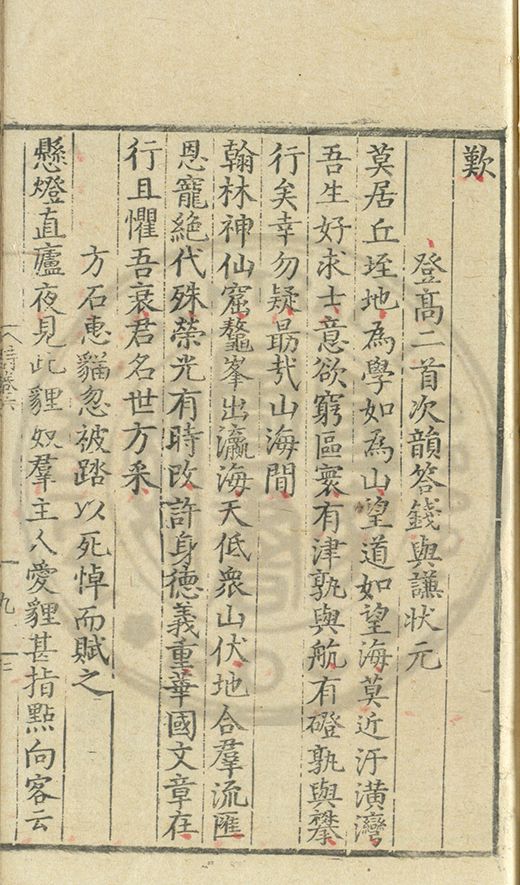 歎
登髙二首次韻答錢與謙狀元
莫居丘垤地為學如為山望道如望海莫近汙潢灣
吾生好求士意欲窮區寰有津孰與航有磴孰與攀
行矣幸勿疑勗㢤山海間
翰林神仙窟鼇峯出瀛海天低衆山伏地合羣流匯
恩寵絶代殊榮光有時改許身德義重華國文章在
行且懼吾衰君名世方采
方石惠猫忽被踏以死悼而賦之
懸燈直廬夜見此貍奴羣主人愛貍甚指點向客云